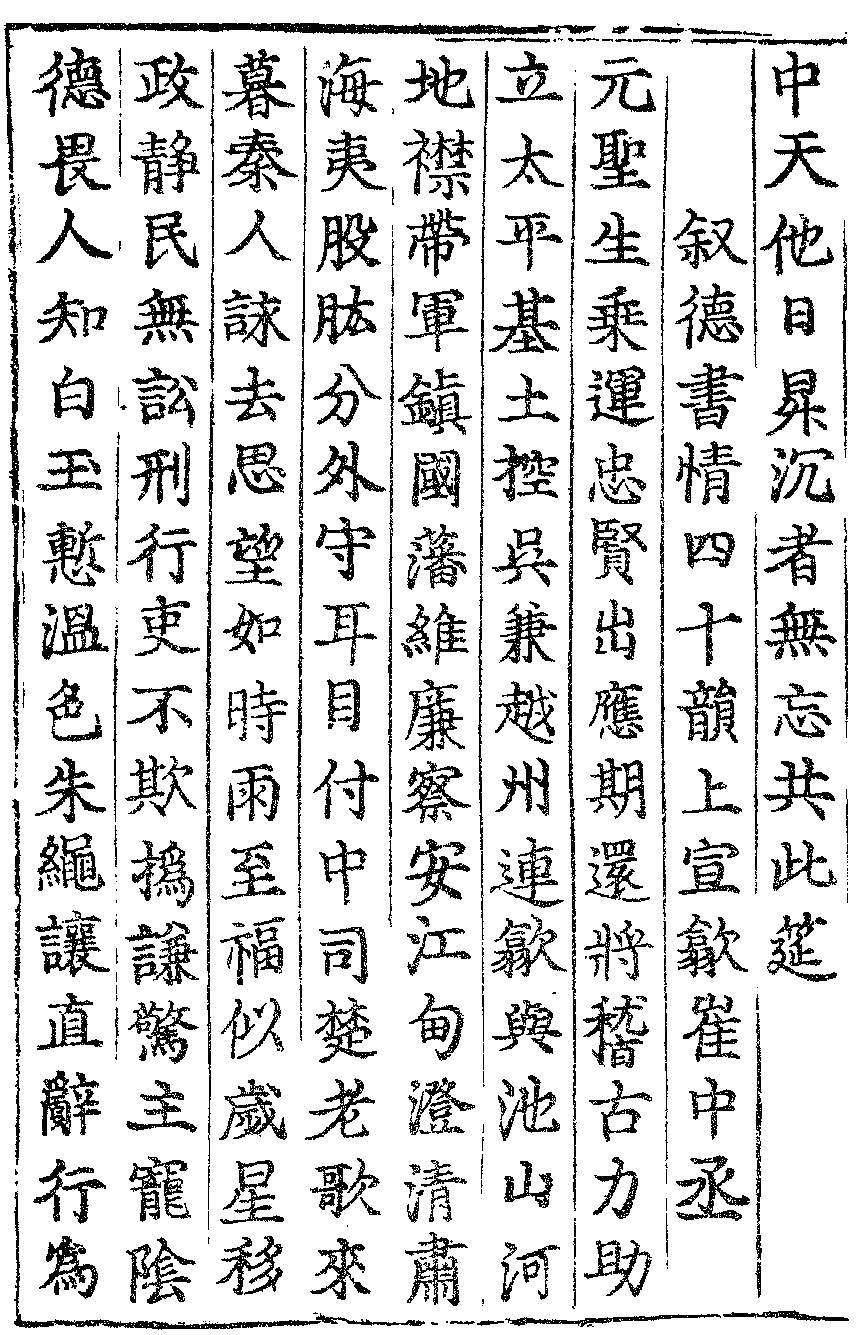 中天他日昇沉者無忘共此筵
叙德書情四十韻上宣歙崔中丞
元聖生乗運忠賢出應期還將稽古力助
立太平基土控吳兼越州連歙與池山河
地襟帶軍鎮國藩維廉察安江甸澄清肅
海夷股肱分外守耳目付中司楚老歌來
暮秦人詠去思望如時雨至福似歲星移
政静民無訟刑行吏不欺撝謙驚主寵陰
德畏人知白玉慙溫色朱繩讓直辭行為